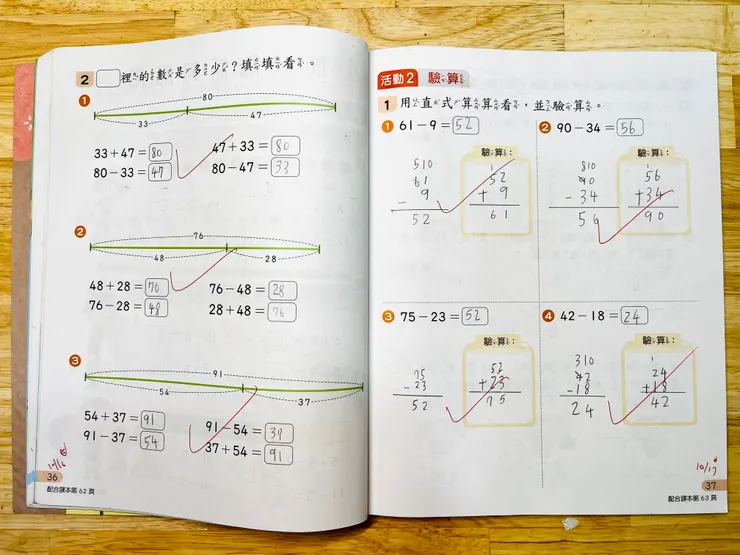 2 □裡的數是多少？填填看。
1
80
33
47
33＋47＝80
47＋33＝80
80－33＝47
80－47＝33
2
76
48
28
48＋28＝76
76－48＝28
76－28＝48
28＋48＝76
3
91
54
37
54＋37＝91
91－54＝
91－37＝54
37＋54＝91
10/16
36
配合課本第 62 頁
活動2 驗算
1 用直式算算看，並驗算。
1 61－9＝52
510
61
－ 9
52
驗算：
1
52
＋ 9
61
2 90－34＝56
810
90
－34
56
驗算：
1
56
＋34
90
3 75－23＝52
75
－23
52
驗算：
52
＋23
75
4 42－18＝24
310
42
－18
24
驗算：
1
24
＋18
42
10/17
37
配合課本第 63 頁